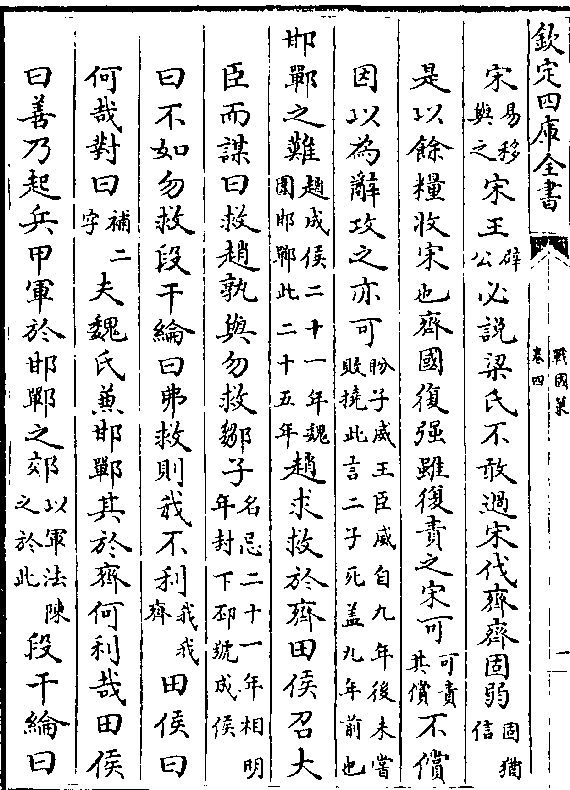 欽定四庫全書
戰國策
卷四
一
宋易移與之宋王辟公必說梁氏不敢過宋伐齊齊固弱固猶信
是以餘糧收宋也齊國復强雖復責之宋可可責其償不償
因以為辭攻之亦可盼子威王臣威自九年後未嘗敗撓此言二子死盖九年前也
邯鄲之難趙成侯二十一年魏圍邯鄲此二十五年趙求救於齊田侯召大
臣而謀曰救趙孰與勿救鄒子名忌二十一年相明年封下邳號成侯
曰不如勿救段干綸曰弗救則我不利我我齊田侯曰
何哉對曰補二字夫魏氏兼邯鄲其於齊何利哉田侯
曰善乃起兵甲軍於邯鄲之郊以軍法陳之於此段干綸曰